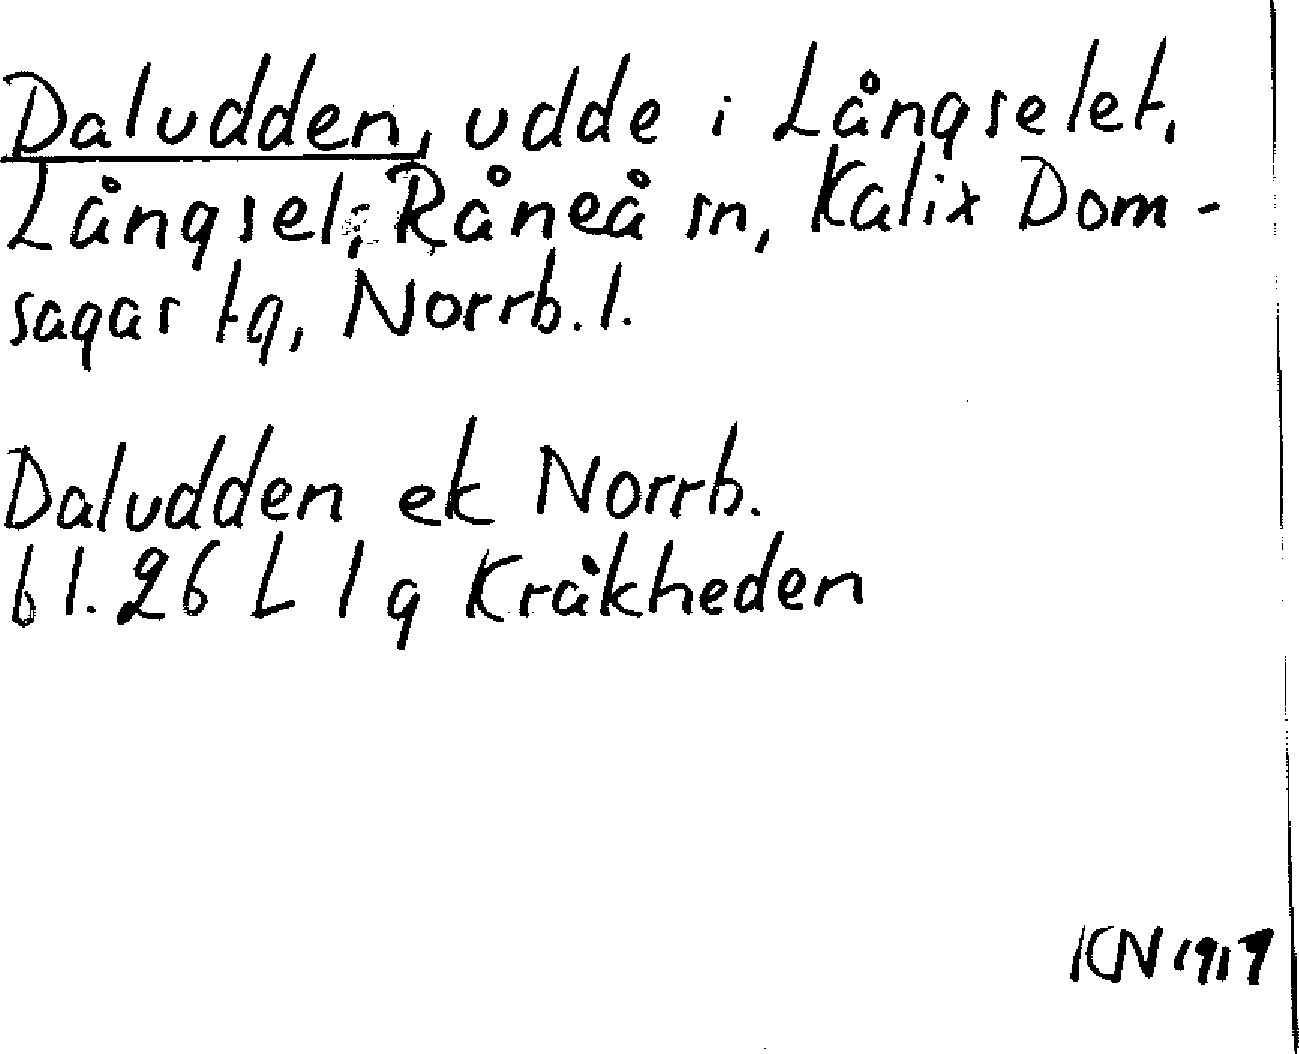 Daludden, udde i Långselet,
Långsel, Råneå sn, Kalix Dom-
sagas tg, Norrb. l.
Daludden ek Norrb.
bl. 26 L l g Kråkheden